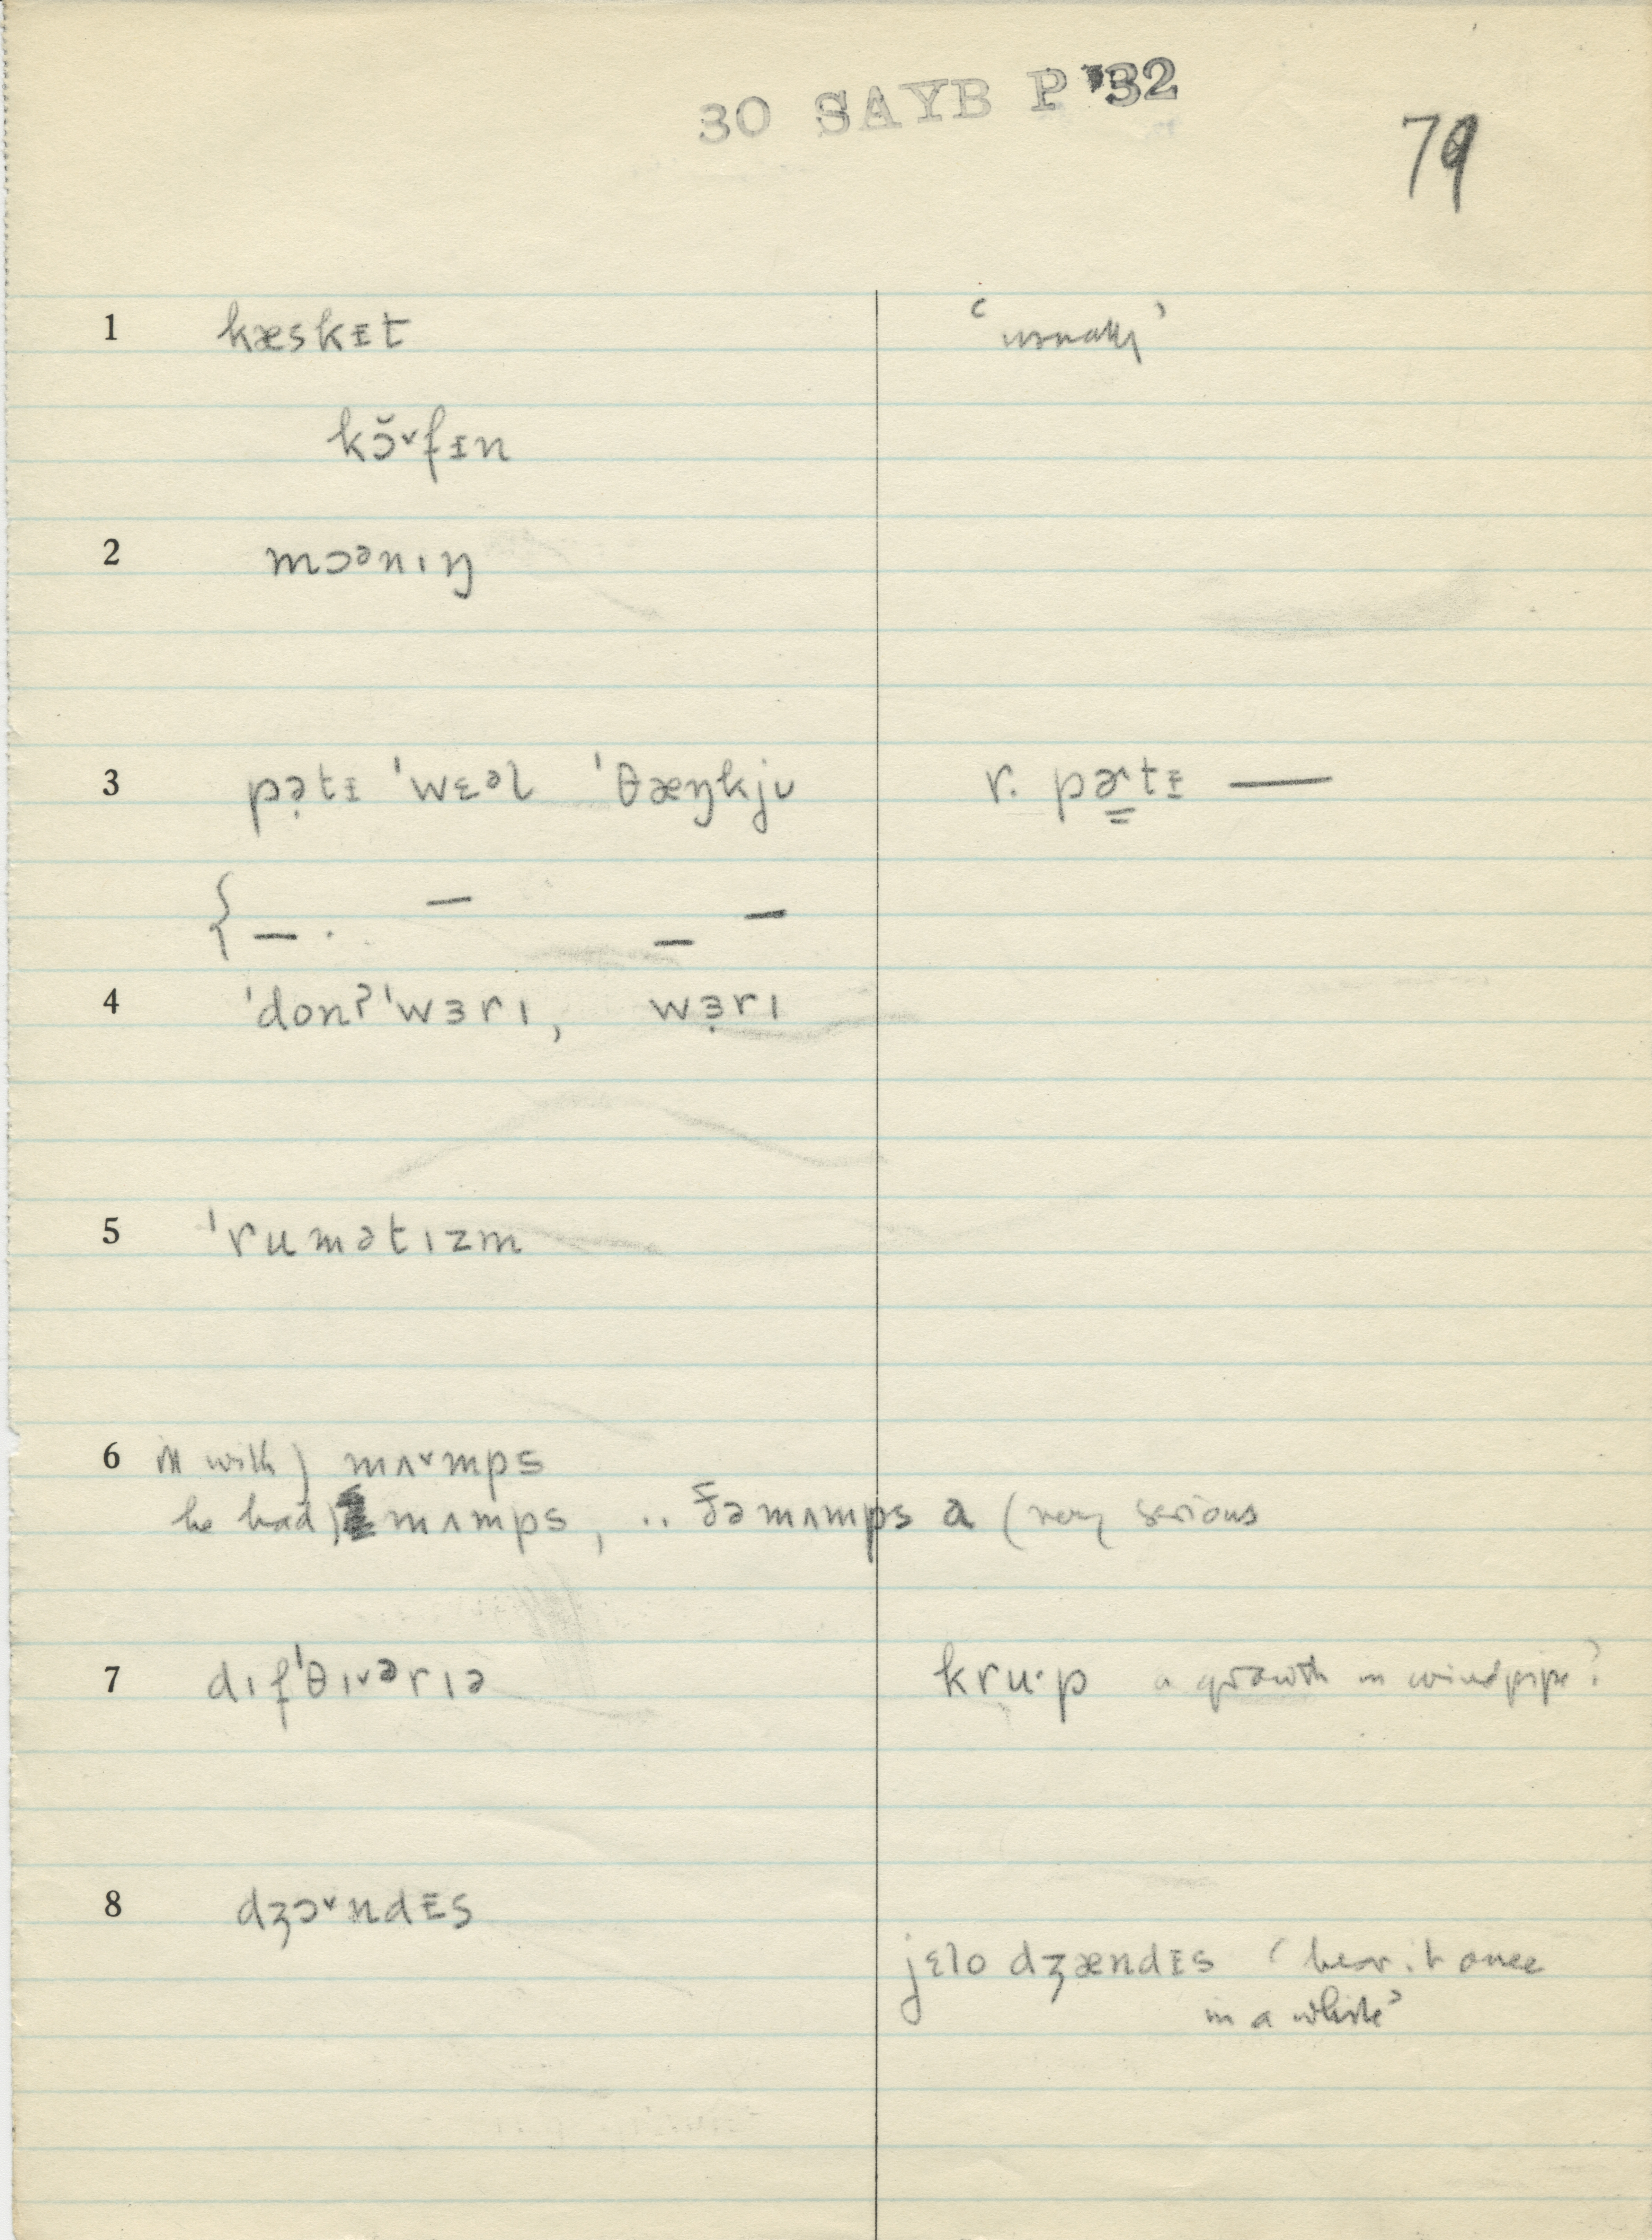 30 SAYB P '32
79
1 kæskᵻt ‘usually’
kɔ̆˅fᵻn
2 mɔənıŋ
3 pə̣tᵻ 'wɛəl 'θæŋkjᴜ r. pɚ̳tᵻ —
{ — . — — —
4 'donʔ'wɜrı, wɜ̣rı
5 'rumətızm
6 ill with) mʌ˅mps
he had) mʌmps, .. ðə mʌmps a (very serious
7 dıf'θı˅ərıə kru·p a growth in windpipe?
8 dʒɔ˅ndᵻs
jɛlo dʒændᵻs ‘hear it once
in a while’